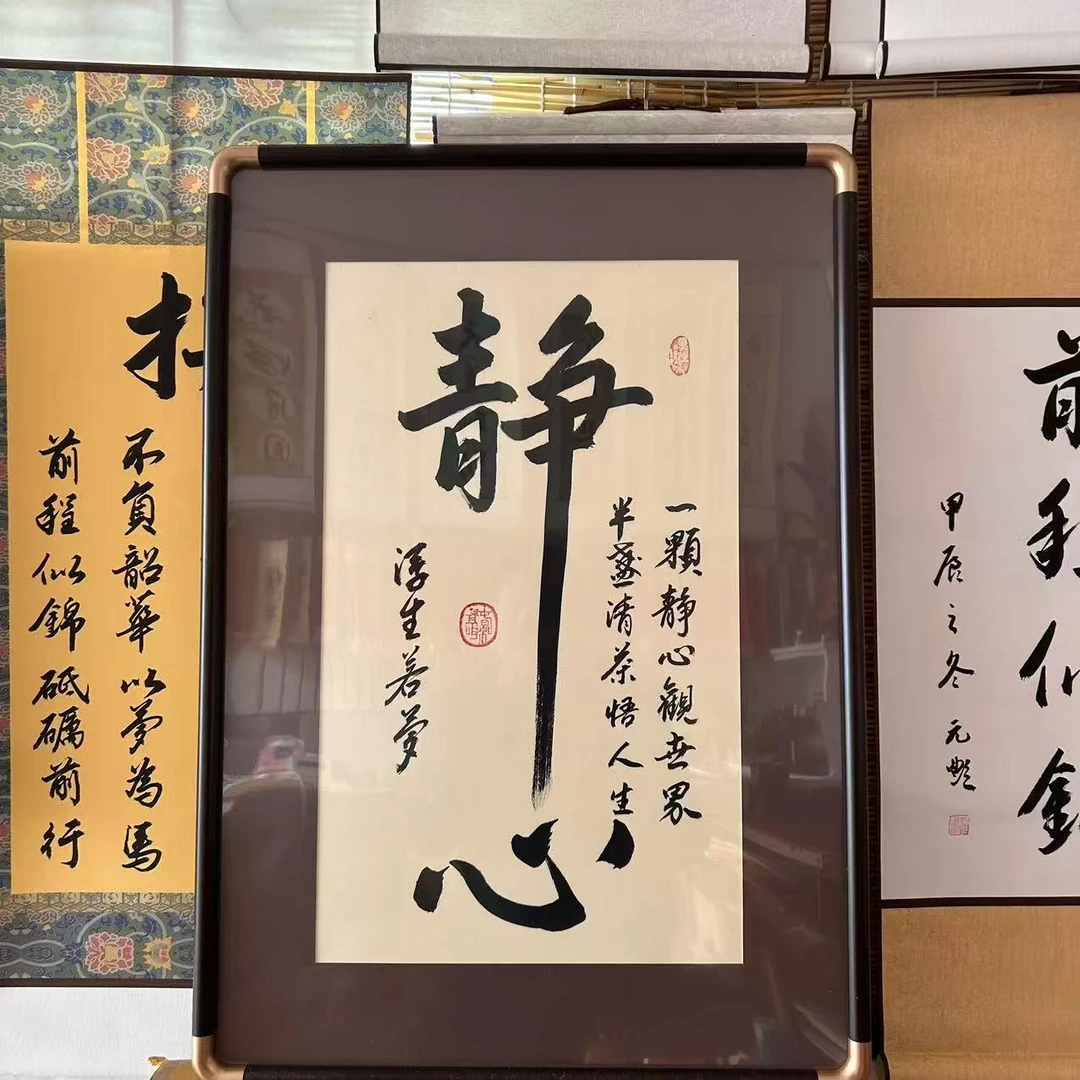 静心
一顆静心觀世界
半盞清茶悟人生
浮生若夢
不負韶華以夢為馬
前程似錦砥礪前行
前程似錦
甲辰之冬 元艷